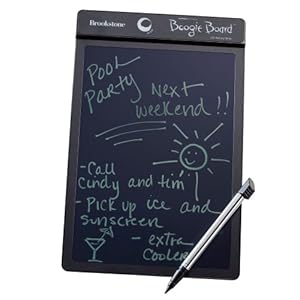 Brookstone
Boogie Board
Pool
Party Next
weekend!!
-Call
Cindy and tim
-PICK up ice and
sunscreen
-extra
Coolers